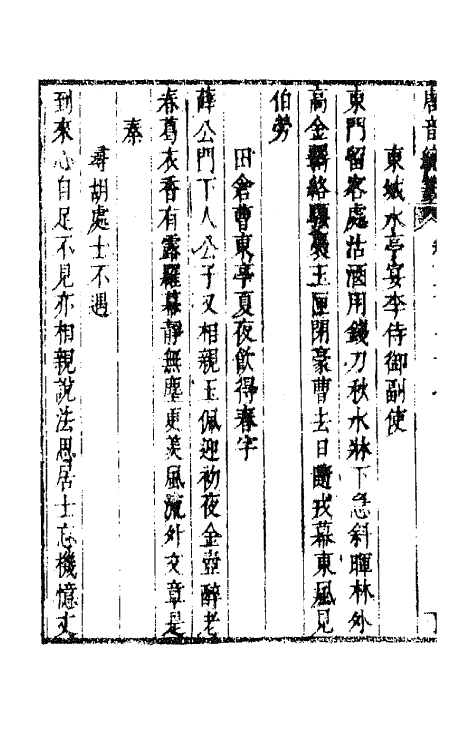 唐音統籤
東城水亭宴李侍御副使
東門留客處沽酒用錢刀秋水牀下急斜暉林外
高金羈絡騕褭玉匣閉豪曹去日隨戎幕東風見
伯勞
田倉曹東亭夏夜飲得春字
薛公門下人公子又相親玉佩迎初夜金壺醉老
春葛衣香有露羅幕靜無塵更羡風流外文章是
秦
尋胡處士不遇
到來心自足不見亦相親說法思居士忘機憶丈